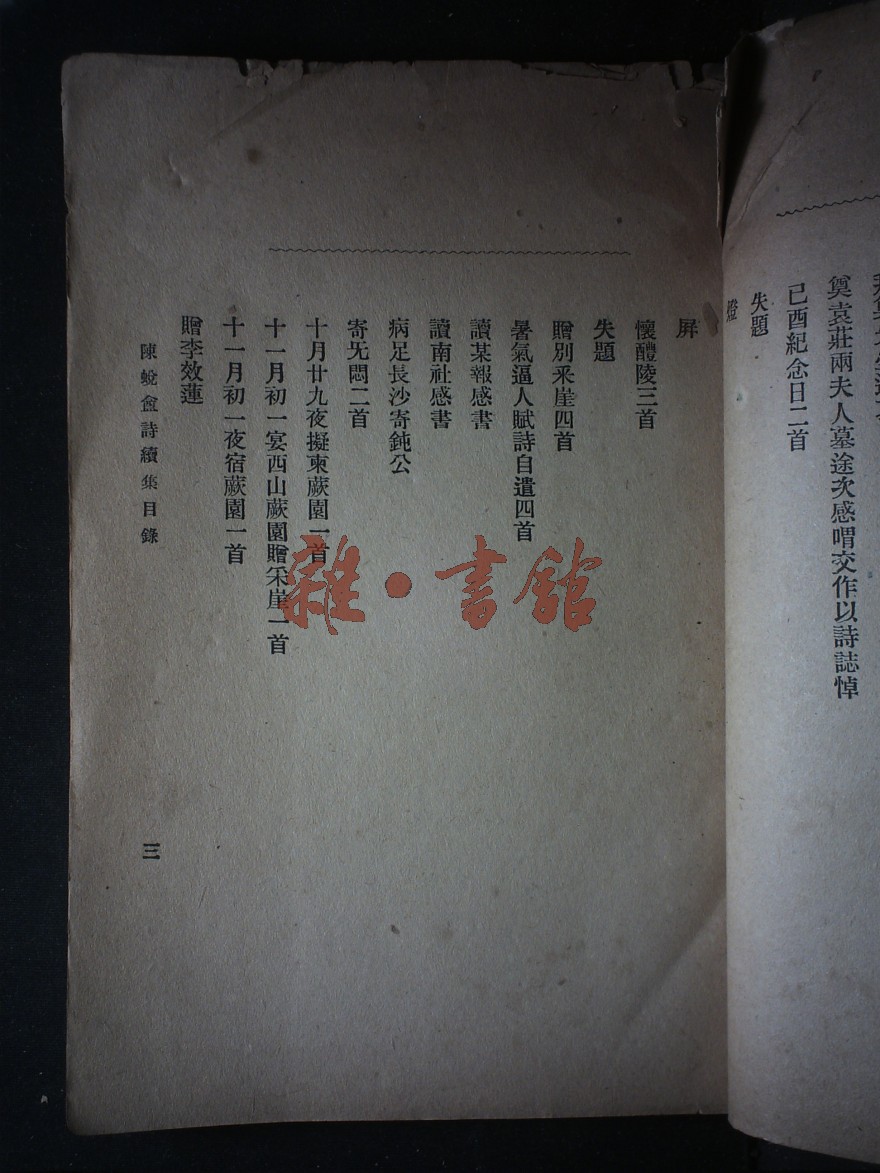 奠袁莊兩夫人墓途次感喟交作以詩誌悼
己酉紀念日二首
失題
燈
屛
懷醴陵三首
失題
贈別釆崖四首
暑氣逼人賦詩自遣四首
讀某報感書
讀南社感書
病足長沙寄鈍公
寄旡悶二首
十月廿九夜擬柬蕨園一首
十一月初一宴西山蕨園贈釆崖一首
十一月初一夜宿蕨園一首
贈李效蓮
陳蛻盦詩續集目錄
三
雜·書館